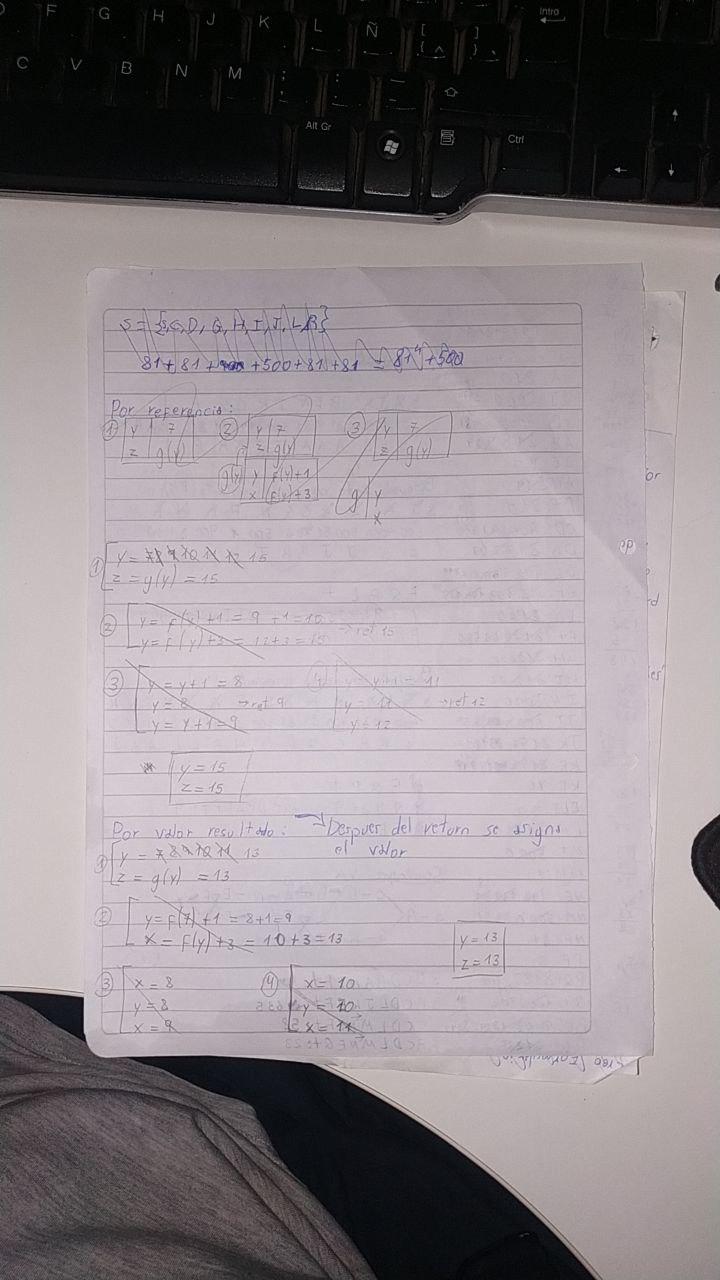 F G H J K L Ñ [ { ^ ] } Intro
C V B N M ; , : . _ -
Alt Gr Ctrl
S = {S,C,D,G,H,I,J,L,R}
81 + 81 + +500 + 81 + 81 = 81⁴ + 500
Por referencia:
① y 7 ② y 7 ③ y 7
z g(y) z g(y) z g(y)
g(y) y f(y)+1 g y
x f(y)+3 x
① y = 7 8 9 10 11 12 15
z = g(y) = 15
② y = f(y)+1 = 9 +1=10
y = f(y)+3 = 12+3 = 15 → ret 15
③ y = y+1 = 8 y = y+1 = 11
y = 8 → ret 9 y = 11 → ret 12
y = y+1 = 9 y = 12
* y = 15
z = 15
Por valor resultado: → Despues del return se asigna
el valor
① y = 7 8 9 10 11 13
z = g(y) = 13
② y = f(7)+1 = 8+1=9
x = f(y)+3 = 10+3=13
y = 13
z = 13
③ x = 8 ④ x = 10
y = 8 y = 10
x = 9 x = 11